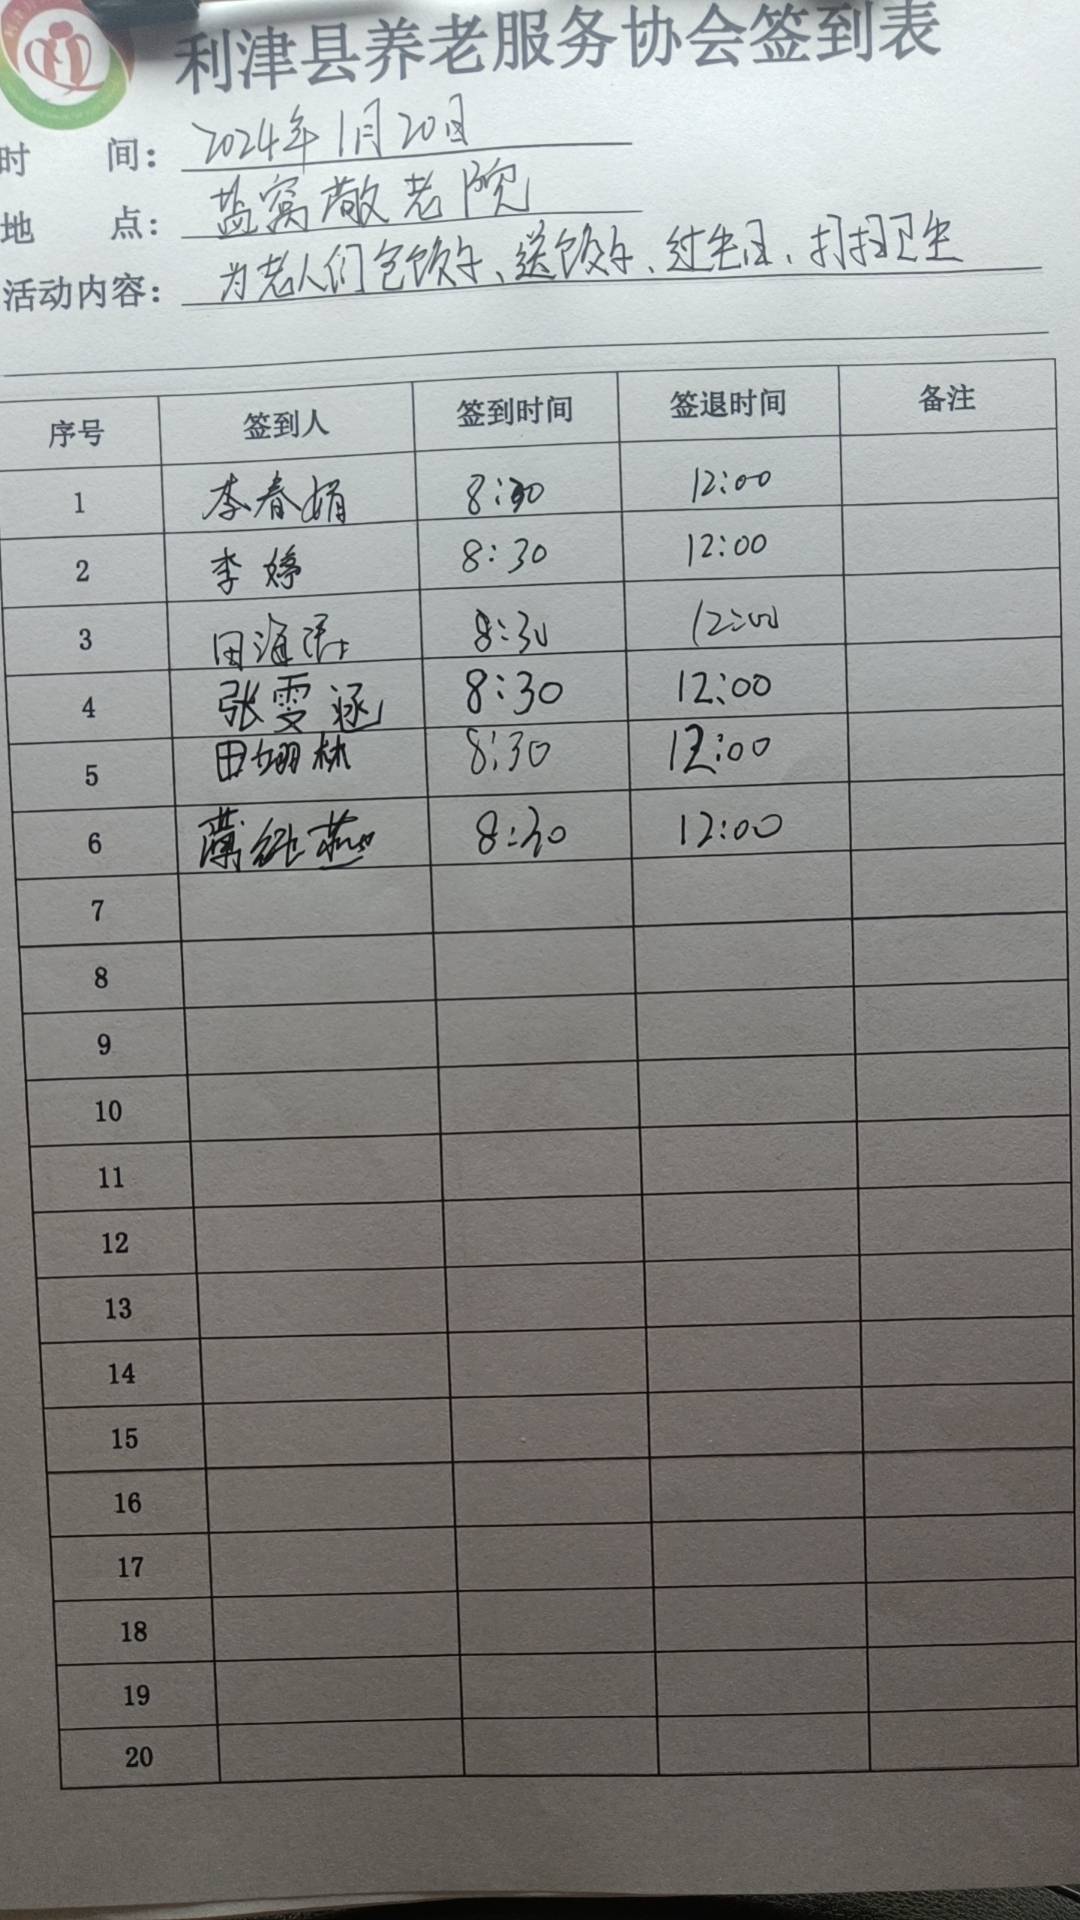 利津县养老服务协会签到表
时 间: 2024年1月20日
地 点: 盐窝敬老院
活动内容: 为老人们包饺子、送饺子、过生日、打扫卫生
序号 签到人 签到时间 签退时间 备注
1 李春娟 8:30 12:00
2 李婷 8:30 12:00
3 田海 8:30 12:00
4 张雯涵 8:30 12:00
5 田翊林 8:30 12:00
6 薄继燕 8:30 12:00
7
8
9
10
11
12
13
14
15
16
17
18
19
20